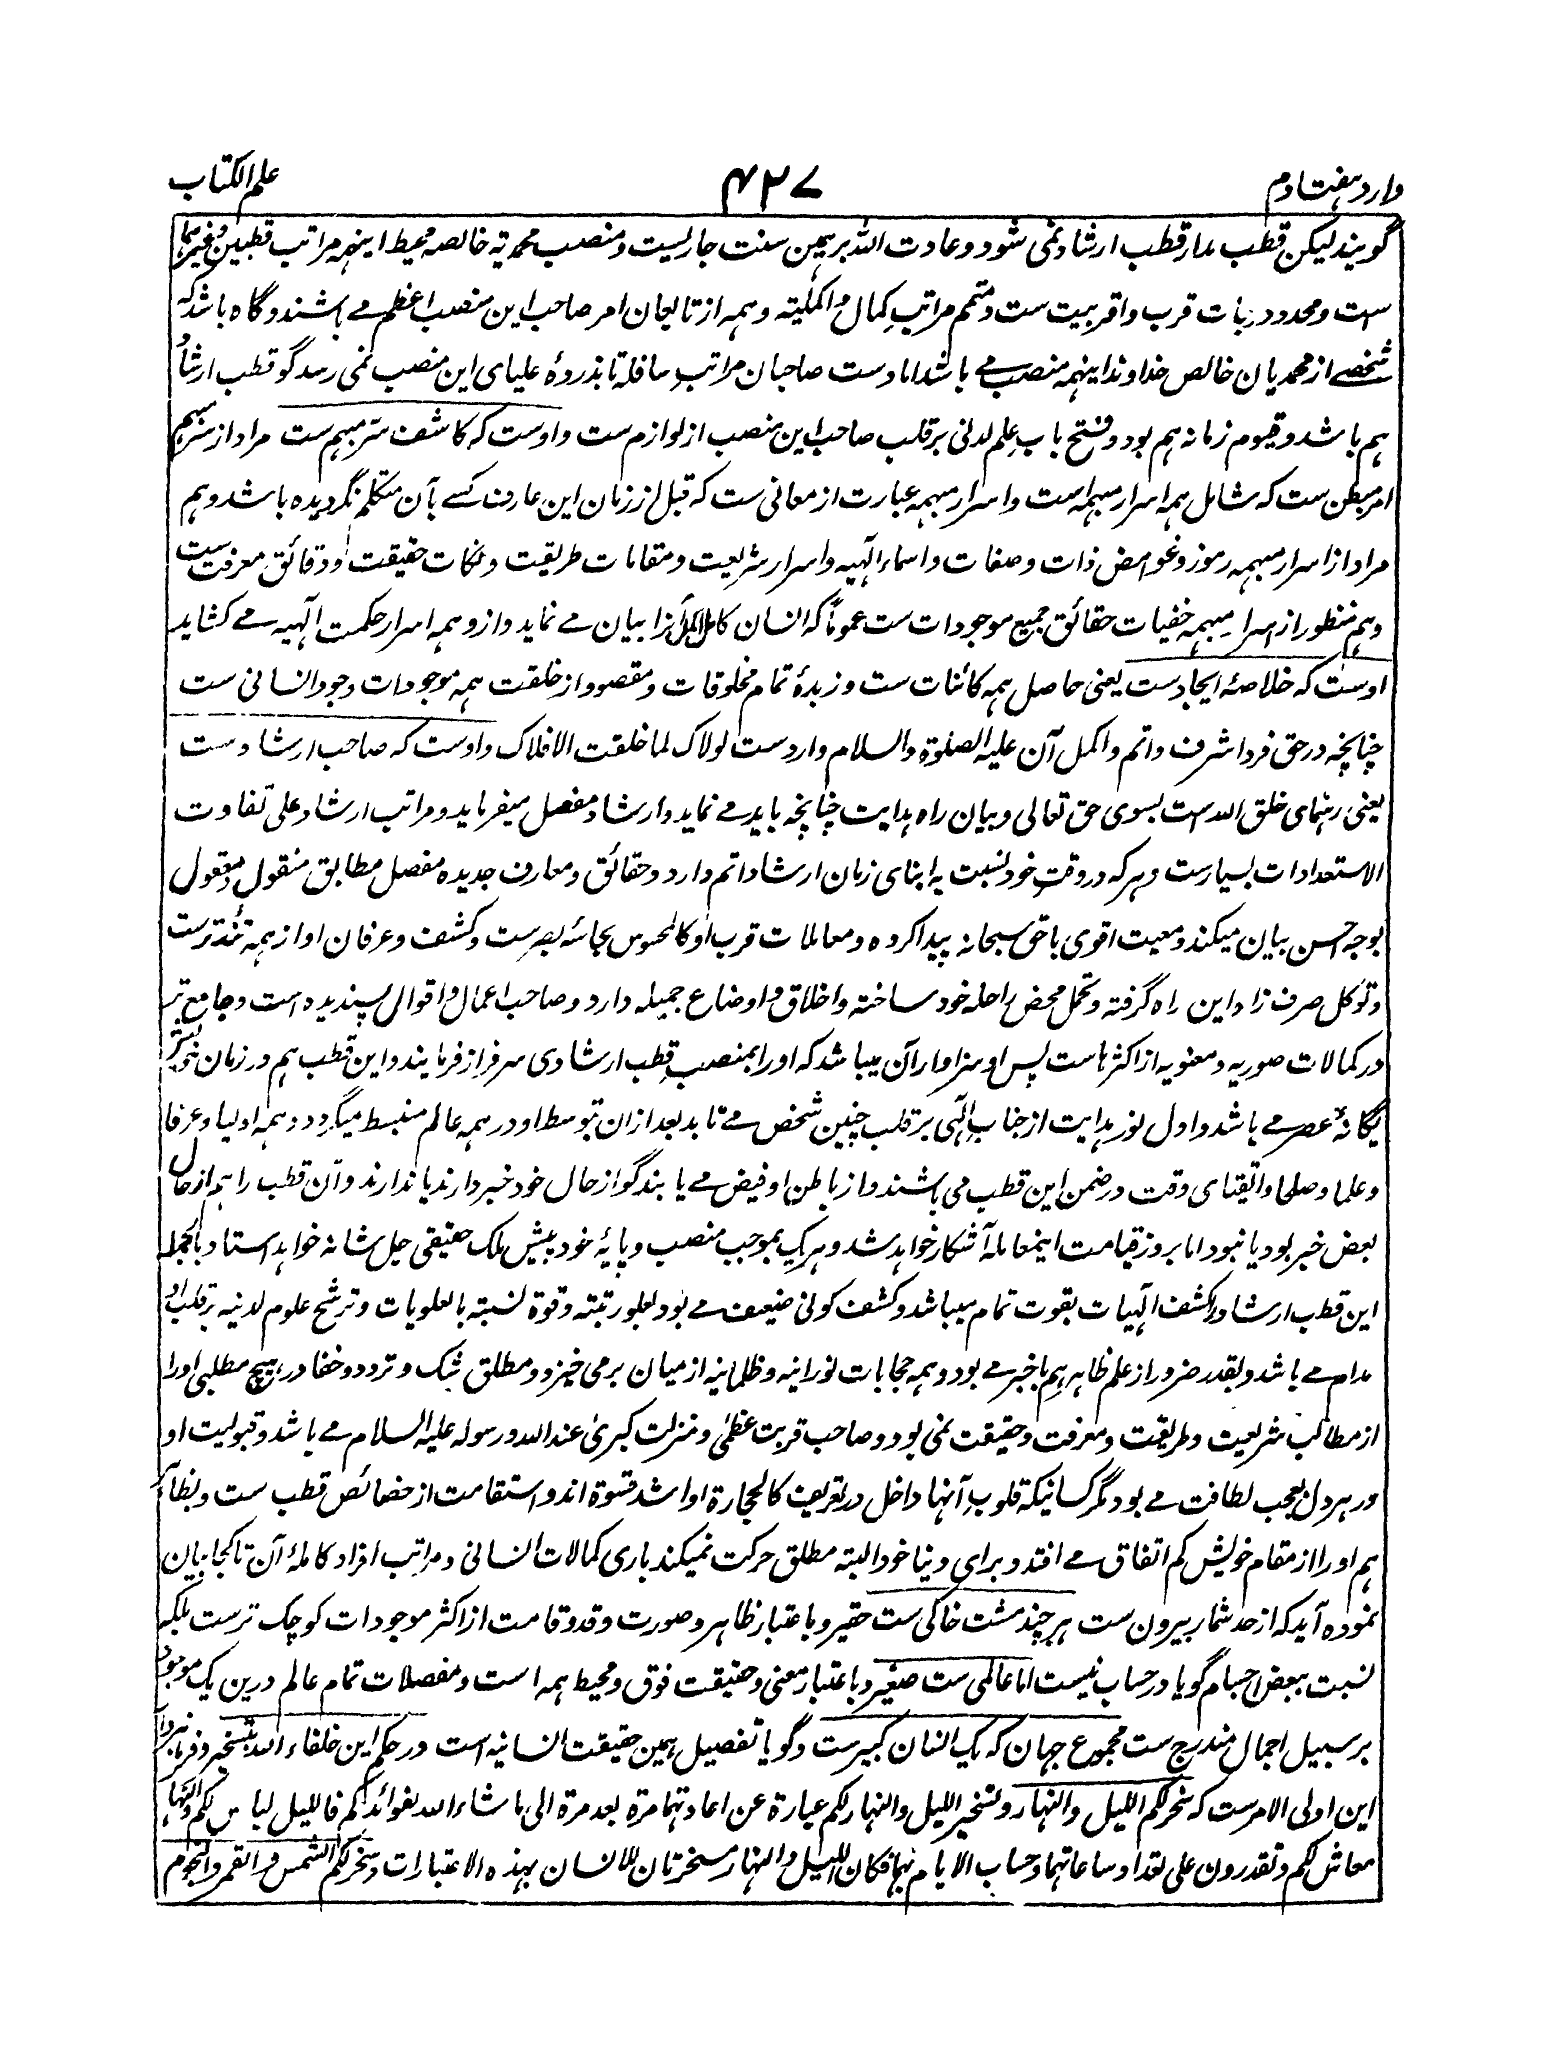 وارد هفتادم
۴۲۷
علم الکتاب
گویند لیکن قطب مدار قطب ارشاد نمی شود و عادت الله بر همین سنت جاریست و منصب محمدیه خالصه محیط اینهمه مراتب قطبین و غیرهما
ست و محدود ربات قرب و اقربیت ست و متمم مراتب کمال و اکملیته و همه از تابعان امر صاحب این منصب اعظم مے باشند و گاه باشد که
شخصے از محمدیان خالص خداوند اینهمه منصب مے باشد اما دست صاحبان مراتب سافله تا بذروۀ علیای این منصب نمی رسد گو قطب ارشاد
هم باشد و قیوم زمانه هم بود و فتح باب علم لدنی بر قلب صاحب این منصب از لوازم ست و اوست که کاشف سرّ مبهم ست مراد از سر مبهم
امر مبطن ست که شامل همه اسرار مبهمه است و اسرار مبهمه عبارت از معانی ست که قبل از زمان این عارف کسے بآن متکلم نگردیده باشد و هم
مراد از اسرار مبهمه رموز و غوامض ذات و صفات و اسماء الٰهیه و اسرار شریعت و مقامات طریقت و نکات حقیقت و دقائق معرفت ست
و هم منظور از اسرار مبهمه خفیات حقائق جمیع موجودات ست عموماً که انسان کامل آنرا بیان مے نماید و ازو همه اسرار حکمت الٰهیه مے کشاید
اوست که خلاصۀ ایجاد ست یعنی حاصل همه کائنات ست و زبدۀ تمام مخلوقات و مقصود از خلقت همه موجودات وجود انسانی ست
چنانچه در حق فرد اشرف و اتم و اکمل آن علیه الصلوة والسلام وارد ست لولاک لما خلقت الافلاک و اوست که صاحب ارشاد ست
یعنی رهنمای خلق الله ست بسوی حق تعالی و بیان راه هدایت چنانچه باید مے نماید و ارشاد مفصل میفرماید و مراتب ارشاد علی تفاوت
الاستعدادات بسیارست و هر که در وقت خود نسبت به ابنای زمان ارشاد اتم دارد و حقائق و معارف جدیده مفصل مطابق منقول و معقول
بوجه احسن بیان میکند و معیت اقوی با حق سبحانه پیدا کرده و معاملات قرب او کالمحسوس بحاسّه بصرست و کشف و عرفان او از همه تندترست
و توکل صرف زاد این راه گرفته و تحمل محض راحله خود ساخته و اخلاق و اوضاع جمیله دارد و صاحب اعمال و اقوال پسندیده است و جامع تر
در کمالات صوریه و معنویه از اکثرهاست پس او سزاوار آن میباشد که او را بمنصب قطب ارشادی سرفراز فرمایند و این قطب هم در زمان خود بیشتر
یگانۀ عصر مے باشد و اول نور هدایت از جناب الٰهی بر قلب چنین شخص مے تابد بعد ازان بتوسط او در همه عالم منبسط میگردد و همه اولیا و عرفا
و علما و صلحا و اتقیای وقت در ضمن این قطب می باشند و از باطن او فیض مے یابند گو از حال خود خبر دارند یا ندارند و آن قطب را هم از حال
بعض خبر بود یا نبود اما بروز قیامت اینمعامله آشکار خواهد شد و هر یک بموجب منصب و پایۀ خود پیش ملک حقیقی جل شانه خواهد استاد بالجمله
این قطب ارشاد را کشف الٰهیات بقوت تمام میباشد و کشف کونی ضعیف مے بود لعلو رتبته و قوة نسبته بالعلویات و ترشح علوم لدنیه بر قلب او
مدام مے باشد و بقدر ضرور از علم ظاهر هم باخبر مے بود و همه حجابات نورانیه و ظلمانیه از میان برمی خیزد و مطلق شک و تردد و خفا در هیچ مطلبی او را
از مطالب شریعت و طریقت و معرفت و حقیقت نمی بود و صاحب قربت عظمی و منزلت کبری عند الله و رسوله علیه السلام مے باشد و قبولیت او
در هر دل بعجب لطافت مے بود مگر کسانیکه قلوب آنها داخل در تعریف کالحجارة او اشد قسوة اند و استقامت از خصائص قطب ست و
هم او را از مقام خویش کم اتفاق مے افتد و برای دنیا خود البته مطلق حرکت نمیکند باری کمالات انسانی و مراتب افراد کاملۀ آن تا کجا بیان
نموده آید که از حد شمار بیرون ست هر چند مشت خاکی ست حقیر و باعتبار ظاهر و صورت و قد و قامت از اکثر موجودات کوچک ترست بلکه
نسبت ببعض اجسام گویا در حساب نیست اما عالمی ست صغیر و باعتبار معنی و حقیقت فوق و محیط همه است و مفصلات تمام عالم درین یک موجود
بر سبیل اجمال مندرج ست مجموع جهان که یک انسان کبیرست و گویا تفصیل همین حقیقت انسانیه است در حکم این خلفاء الله بتسخیر و فرمانبردار
این اولی الامرست که سخر لکم اللیل والنهار و تسخیر اللیل والنهار لکم عبارة عن اعادتهما مرة بعد مرة الی ما شاء الله لفوائدکم فاللیل لباس لکم والنهار
معاش لکم و تقدرون علی تعداد ساعاتهما و حساب الایام بهما فکان اللیل والنهار مسخرتان للانسان بهذه الاعتبارات و سخر لکم الشمس والقمر والنجوم